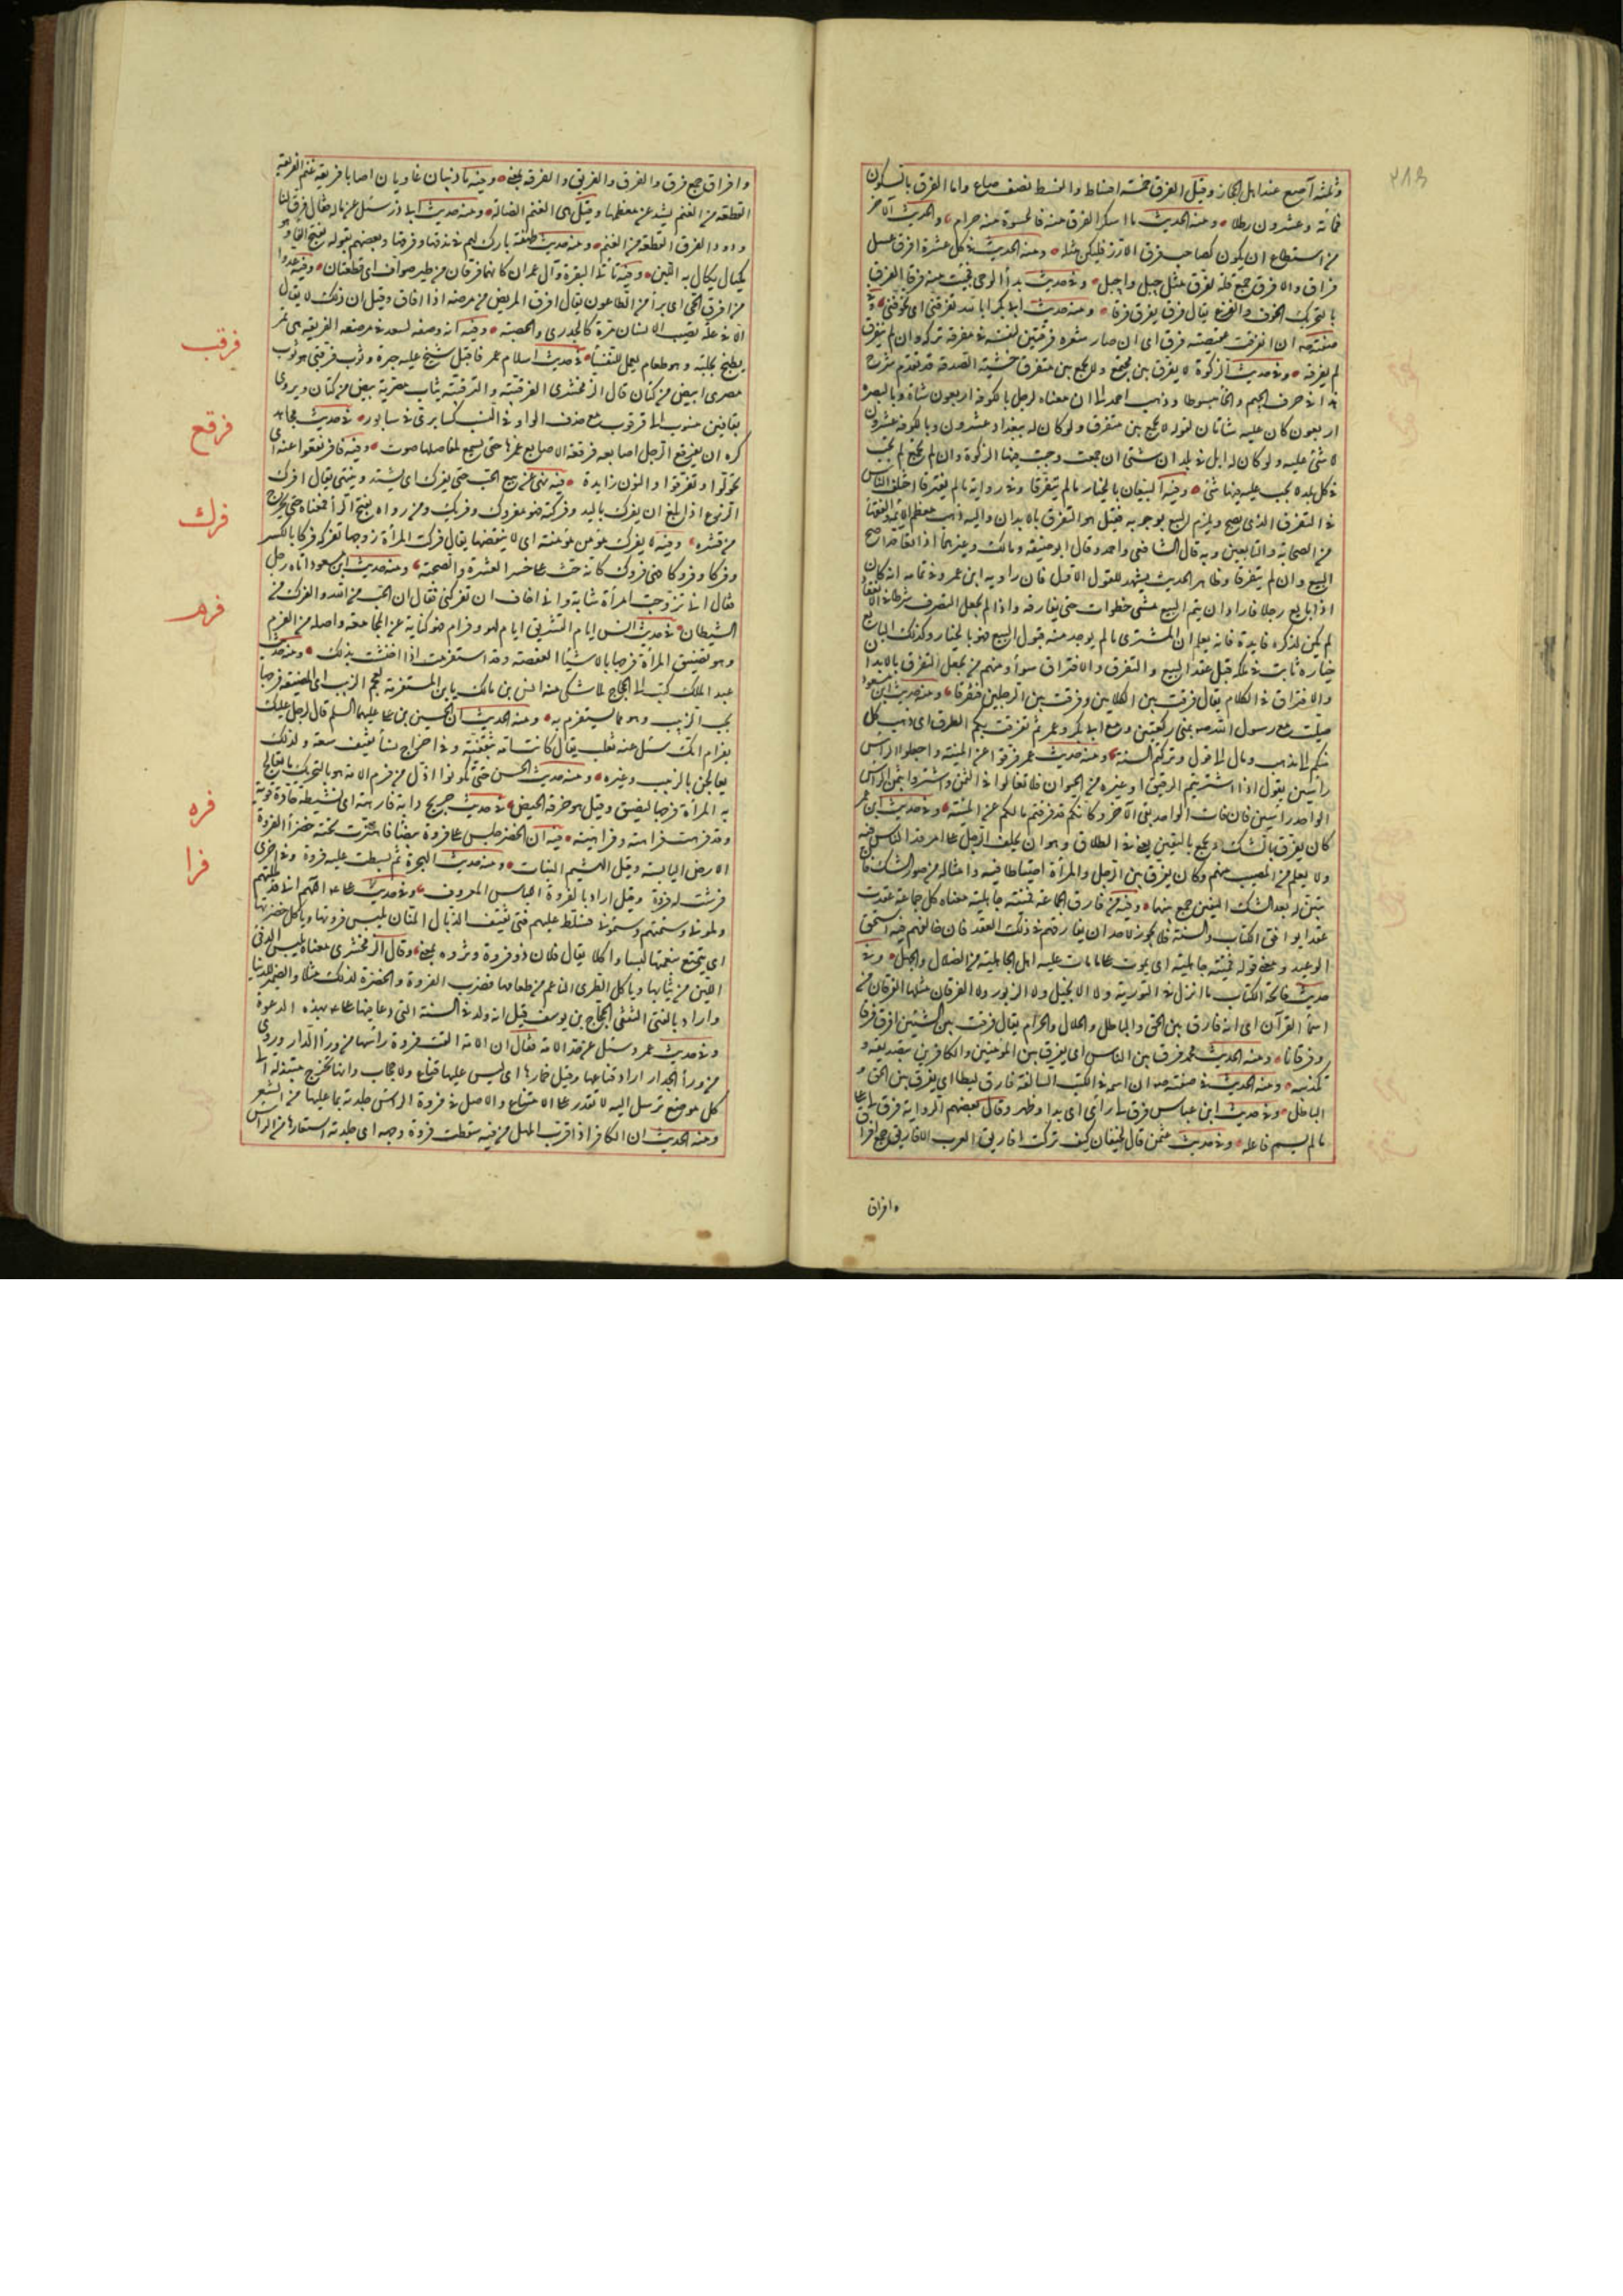 وثلثة آصع عند اهل الحجاز وقيل الفرق خمسة اقساط والقسط نصف صاع واما الفرق بالسكون
فمائة وعشرون رطلا ومنه الحديث ما اسكر الفرق منه فالحسوة منه حرام والحديث الآخر
من استطاع ان يكون كصاحب فرق الارز فليكن مثله ومنه الحديث في كل عشرة افرق عسل
فرق والافرق جمع قلة لفرق مثل جبل واجبل وفي حديث بدأ الوحي فجئت منه فرقا الفرق
بالتحريك الخوف والفزع يقال فرق يفرق فرقا ومنه حديث ابي بكر ابا لله تفرقني اي تخوفني وفي
صفته ان انفرقت عقيصته فرق اي ان صار شعره فرقتين لنفسه في مفرقه تركه وان لم ينفرق
لم يفرقه وفي حديث الزكوة لا يفرق بين مجتمع ولا يجمع بين متفرق خشية الصدقة قد تقدم شرح
هذا في حرف الجيم والخا مبسوطا وذهب احمد الى ان معناه لرجل بالكوفة اربعون شاة وبالبصرة
اربعون كان عليه شاتان لقوله لا يجمع بين متفرق ولو كان له ببغداد عشرون وبالكوفة عشرون
لا شئ عليه ولو كان له ابل في بلدان شتى ان جمعت وجبت فيها الزكوة وان لم تجمع لم تجب
في كل بلد لا يجب عليه فيها شئ وفيه البيعان بالخيار ما لم يتفرقا وفي رواية ما لم يفترقا اختلف الناس
في التفرق الذي يصح ويلزم البيع بوجوبه فقيل هو التفرق بالابدان واليه ذهب معظم الائمة والفقها
من الصحابة والتابعين وبه قال الشافعي واحمد وقال ابو حنيفة ومالك وغيرهما اذا تعاقدا صح
البيع وان لم يتفرقا وظاهر الحديث يشهد للقول الاول فان راويه ابن عمر وفي تمامه انه كان
اذا بايع رجلا فاراد ان يتم البيع مشى خطوات حتى يفارقه واذا لم يجعل التفرق شرطا في الانعقاد
لم يكن لذكره فايدة فانه يعلم ان المشتري ما لم يوجد منه قبول البيع فهو بالخيار وكذلك البايع
خياره ثابت في ملكه قبل عقد البيع والتفرق والافتراق سوأ ومنهم من يجعل التفرق بالابدان
والافتراق في الكلام يقال فرقت بين الكلامين وفرقت بين الرجلين فتفرقا ومنه حديث ابن مسعود
صليت مع رسول الله صه بمنى ركعتين ومع ابي بكر وعمر ثم تفرقت بكم الطرق اي ذهب كل
منكم الى مذهب ومال الى قول وتركتم السنة ومنه حديث عمر فرقوا عن المنية واجعلوا الراس
رأسين يقول اذا اشتريتم الرقيق او غيره من الحيوان فلا تغالوا في الثمن واشتروا بثمن الراس
الواحد راسين فان مات الواحد بقى الآخر وكانكم قد فرقتم مالكم عن المنية وفي حديث ابن عمر
كان يفرق بالشك ويجمع باليقين يعني في الطلاق وهو ان يحلف الرجل على امر قد اختلف الناس فيه
ولا يعلم من المصيب منهم وكان يفرق بين الرجل والمرأة احتياطا فيه وفي امثاله من صور الشك فان
تبين له بعد الشك اليقين جمع بينهما وفيه من فارق الجماعة فميتته جاهلية معناه كل جماعة عقدت
عقدا يوافق الكتاب والسنة فلا يجوز لاحد ان يفارقهم في ذلك العقد فان خالفهم فيه استحق
الوعيد ومعنى قوله فميتته جاهلية اي يموت على ما مات عليه اهل الجاهلية من الضلال والجهل وفي
حديث فاتحة الكتاب ما انزل في التورية ولا الانجيل ولا الزبور ولا الفرقان مثلها الفرقان من
اسمأ القرآن اي انه فارق بين الحق والباطل والحلال والحرام يقال فرقت بين الشيئين افرق فرقا
وفرقانا ومنه الحديث محمد فرق بين الناس اي يفرق بين المؤمنين والكافرين بتصديقه و
تكذيبه ومنه الحديث في صفته صه ان اسمه في الكتب السالفة فارق ليطا اي يفرق بين الحق و
الباطل وفي حديث ابن عباس فرق لي رأي اي بدا وظهر وقال بعضهم الرواية فرق لي على
ما لم يسم فاعله وفي حديث عثمن قال لخيفان كيف تركت افاريق العرب الافاريق جمع افراق
وافراق
وافراق جمع فرق والفرق والفريق والفرقة بمعنى وفيه ما ذئبان عاديان اصابا فريقة غنم الفريقة
القطعة من الغنم تشذ عن معظمها وقيل هي الغنم الضالة ومنه حديث ابي ذر سئل عن ماله فقال فرق لنا
وذود الفرق القطعة من الغنم ومنه حديث طهفة بارك لهم في مذقها وفرقها وبعضهم يقوله بفتح الفا وهو
مكيال يكال به اللبن وفيه تاتي البقرة وآل عمران كانهما فرقان من طير صواف اي قطعتان وفيه عدوا
من افرق من الحمى اي برأ من الطاعون يقال افرق المريض من مرضه اذا افاق وقيل ان ذلك لا يقال
الا في علة تصيب الانسان مرة كالجدري والحصبة وفيه انه وصف لسعد في مرضه الفريقة هي تمر
يطبخ بحلبة وهو طعام يعمل للنفسأ في حديث اسلام عمر فاقبل شيخ عليه حبرة وثوب فرقبي هو ثوب
مصري ابيض من كتان قال الزمخشري الفرقبية والثرقبية ثياب مصرية بيض من كتان ويروى
بقافين منسوب الى قرقوب مع حذف الواو في النسب كسابري في سابور في حديث مجاهد
كره ان يفرقع الرجل اصابعه فرقعة الاصابع غمزها حتى يسمع لمفاصلها صوت وفيه فافرنقعوا عنه اي
تحولوا وتفرقوا والنون زايدة فيه نهى عن بيع الحب حتى يفرك اي يشتد وينتهي يقال افرك
الزرع اذا بلغ ان يفرك باليد وفركته فهو مفروك وفريك ومن رواه بفتح الرأ فمعناه حتى يخرج
من قشره وفيه لا يفرك مؤمن مؤمنة اي لا يبغضها يقال فركت المرأة زوجها تفركه فركا بالكسر
وفركا وفروكا فهي فروك كانه حث على حسن العشرة والصحبة ومنه حديث ابن مسعود اتاه رجل
فقال اني تزوجت امرأة شابة واني اخاف ان تفركني فقال ان الحب من الله والفرك من
الشيطان في حديث انس ايام التشريق ايام لهو وفرام هو كناية عن المجامعة واصله من الفرم
وهو تضييق المرأة فرجها بالاشيأ العفصة وقد استفرمت اذا احتشت بذلك ومنه حديث
عبد الملك كتب الى الحجاج لما شكى منه انس بن مالك يابن المستفرمة بعجم الزبيب اي المضيقة فرجها
بحب الزبيب وهو مما يستفرم به ومنه الحديث ان الحسين بن علي عليهما السلم قال لرجل عليك
بفرام امك سئل عنه ثعلب يقال كانت امه ثقفية وفي احراح نسأ ثقيف سعة ولذلك
يعالجن بالزبيب وغيره ومنه حديث الحسن حتى تكونوا اذل من فرم الامة هو بالتحريك ما تعالج
به المرأة فرجها ليضيق وقيل هو خرقة الحيض في حديث جريج دابة فارهة اي نشيطة حادة قوية
وقد فرهت فراهة وفراهية فيه ان الخضر جلس على فروة بيضأ فاهتزت تحته خضرأ الفروة
الارض اليابسة وقيل الهشيم من النبات ومنه حديث الهجرة ثم بسطت عليه فروة وفي اخرى
فرشت له فروة وقيل اراد بالفروة اللباس المعروف وفي حديث علي عه اللهم اني قد مللتهم
وملوني وسئمتهم وسئموني فسلط عليهم فتى ثقيف الذيال المنان يلبس فروتها وياكل خضرتها
اي يتمتع بنعمتها لبسا واكلا يقال فلان ذو فروة وثروة بمعنى وقال الزمخشري معناه يلبس الدفئ
اللين من ثيابها وياكل الطري الناعم من طعامها فضرب الفروة والخضرة لذلك مثلا والضمير للدنيا
واراد بالفتى الثقفي الحجاج بن يوسف قيل انه ولد في السنة التي دعا فيها علي عه بهذه الدعوة
وفي حديث عمر وسئل عن حد الامة فقال ان الامة القت فروة رأسها من ورأ الدار وروي
من ورأ الجدار اراد قناعها وقيل خمارها اي ليس عليها قناع ولا حجاب وانها تخرج متبذلة الى
كل موضع ترسل اليه لا تقدر على الامتناع والاصل في فروة الراس جلدته بما عليها من الشعر
ومنه الحديث ان الكافر اذا قرب المهل من فيه سقطت فروة وجهه اي جلدته استعارها من الراس
فرقب
فرقع
فرك
فرم
فره
فرا